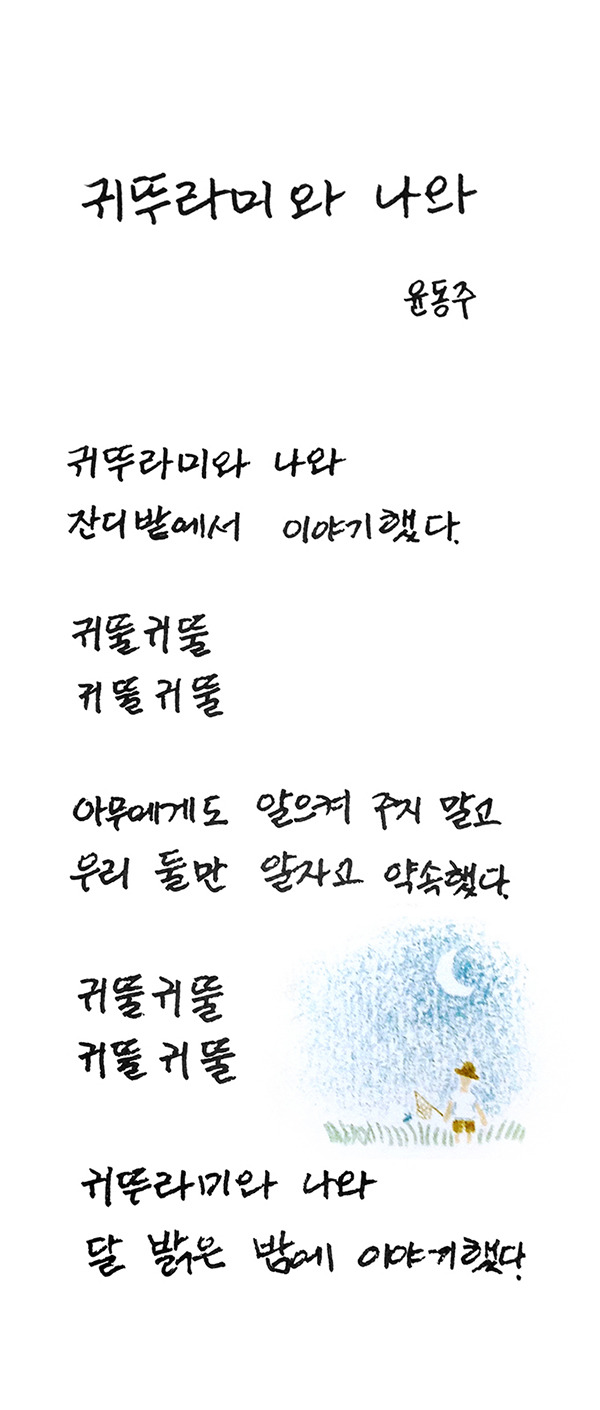 귀뚜라미와 나와
윤동주
귀뚜라미와 나와
잔디밭에서 이야기했다.
귀뚤귀뚤
귀뚤귀뚤
아무에게도 알으켜 주지 말고
우리 둘만 알자고 약속했다.
귀뚤귀뚤
귀뚤귀뚤
귀뚜라미와 나와
달 밝은 밤에 이야기했다.